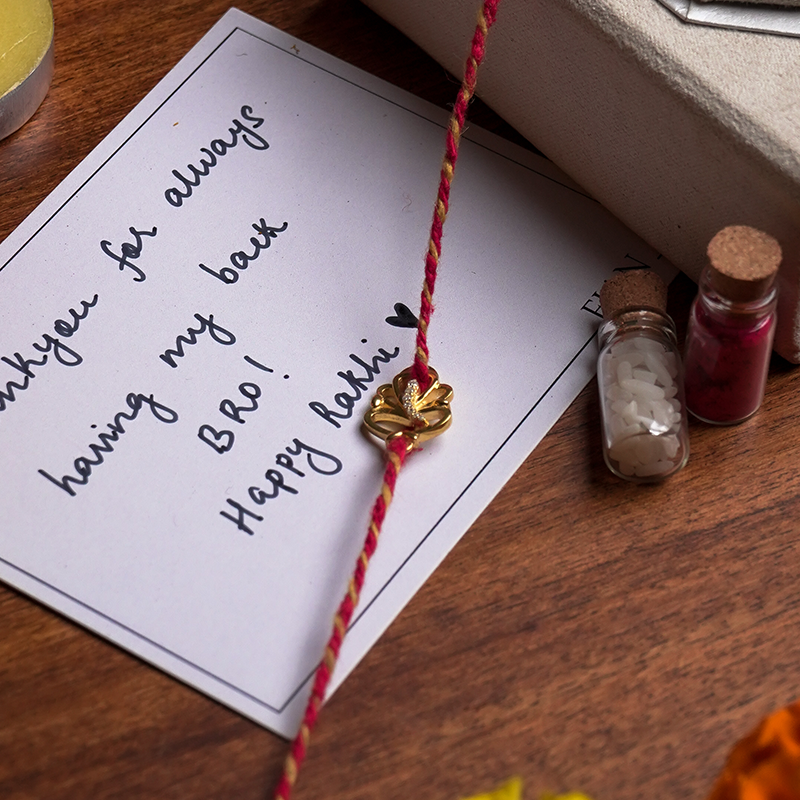 nkyou for always
having my back
BRO!
Happy Rakhi ♥